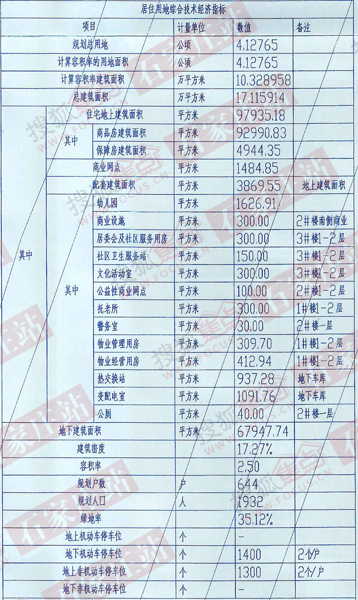 居住用地综合技术经济指标
项目 计量单位 数值 备注
规划总用地 公顷 4.12765
计算容积率的用地面积 公顷 4.12765
计算容积率建筑面积 万平方米 10.328958
总建筑面积 万平方米 17.115914
住宅地上建筑面积 平方米 97935.18
其中 商品房建筑面积 平方米 92990.83
保障房建筑面积 平方米 4944.35
商业网点 平方米 1484.85
配套建筑面积 平方米 3869.55 地上建筑面积
幼儿园 平方米 1626.91
商业设施 平方米 300.00 2#楼南侧商业
居委会及社区服务用房 平方米 300.00 3#楼1-2层
社区卫生服务站 平方米 150.00 3#楼1-2层
文化活动室 平方米 300.00 3#楼1-2层
公益性商业网点 平方米 100.00 2#楼1-2层
托老所 平方米 300.00 1#楼1-2层
警务室 平方米 30.00 2#楼一层
物业管理用房 平方米 309.70 1#楼1-2层
物业经营用房 平方米 412.94 1#楼1-2层
热交换站 平方米 937.28 地下车库
变配电室 平方米 1091.76 地下车库
公厕 平方米 40.00 2#楼一层
其中
其中
地下建筑面积 平方米 67947.74
建筑密度 17.27%
容积率 2.50
规划户数 户 644
规划人口 人 1932
绿地率 35.12%
地上机动车停车位 个 -
地下机动车停车位 个 1400 2个/户
地上非机动车停车位 个 1300 2个/户
地下非机动车停车位 个 -
搜狐焦点
石家庄站